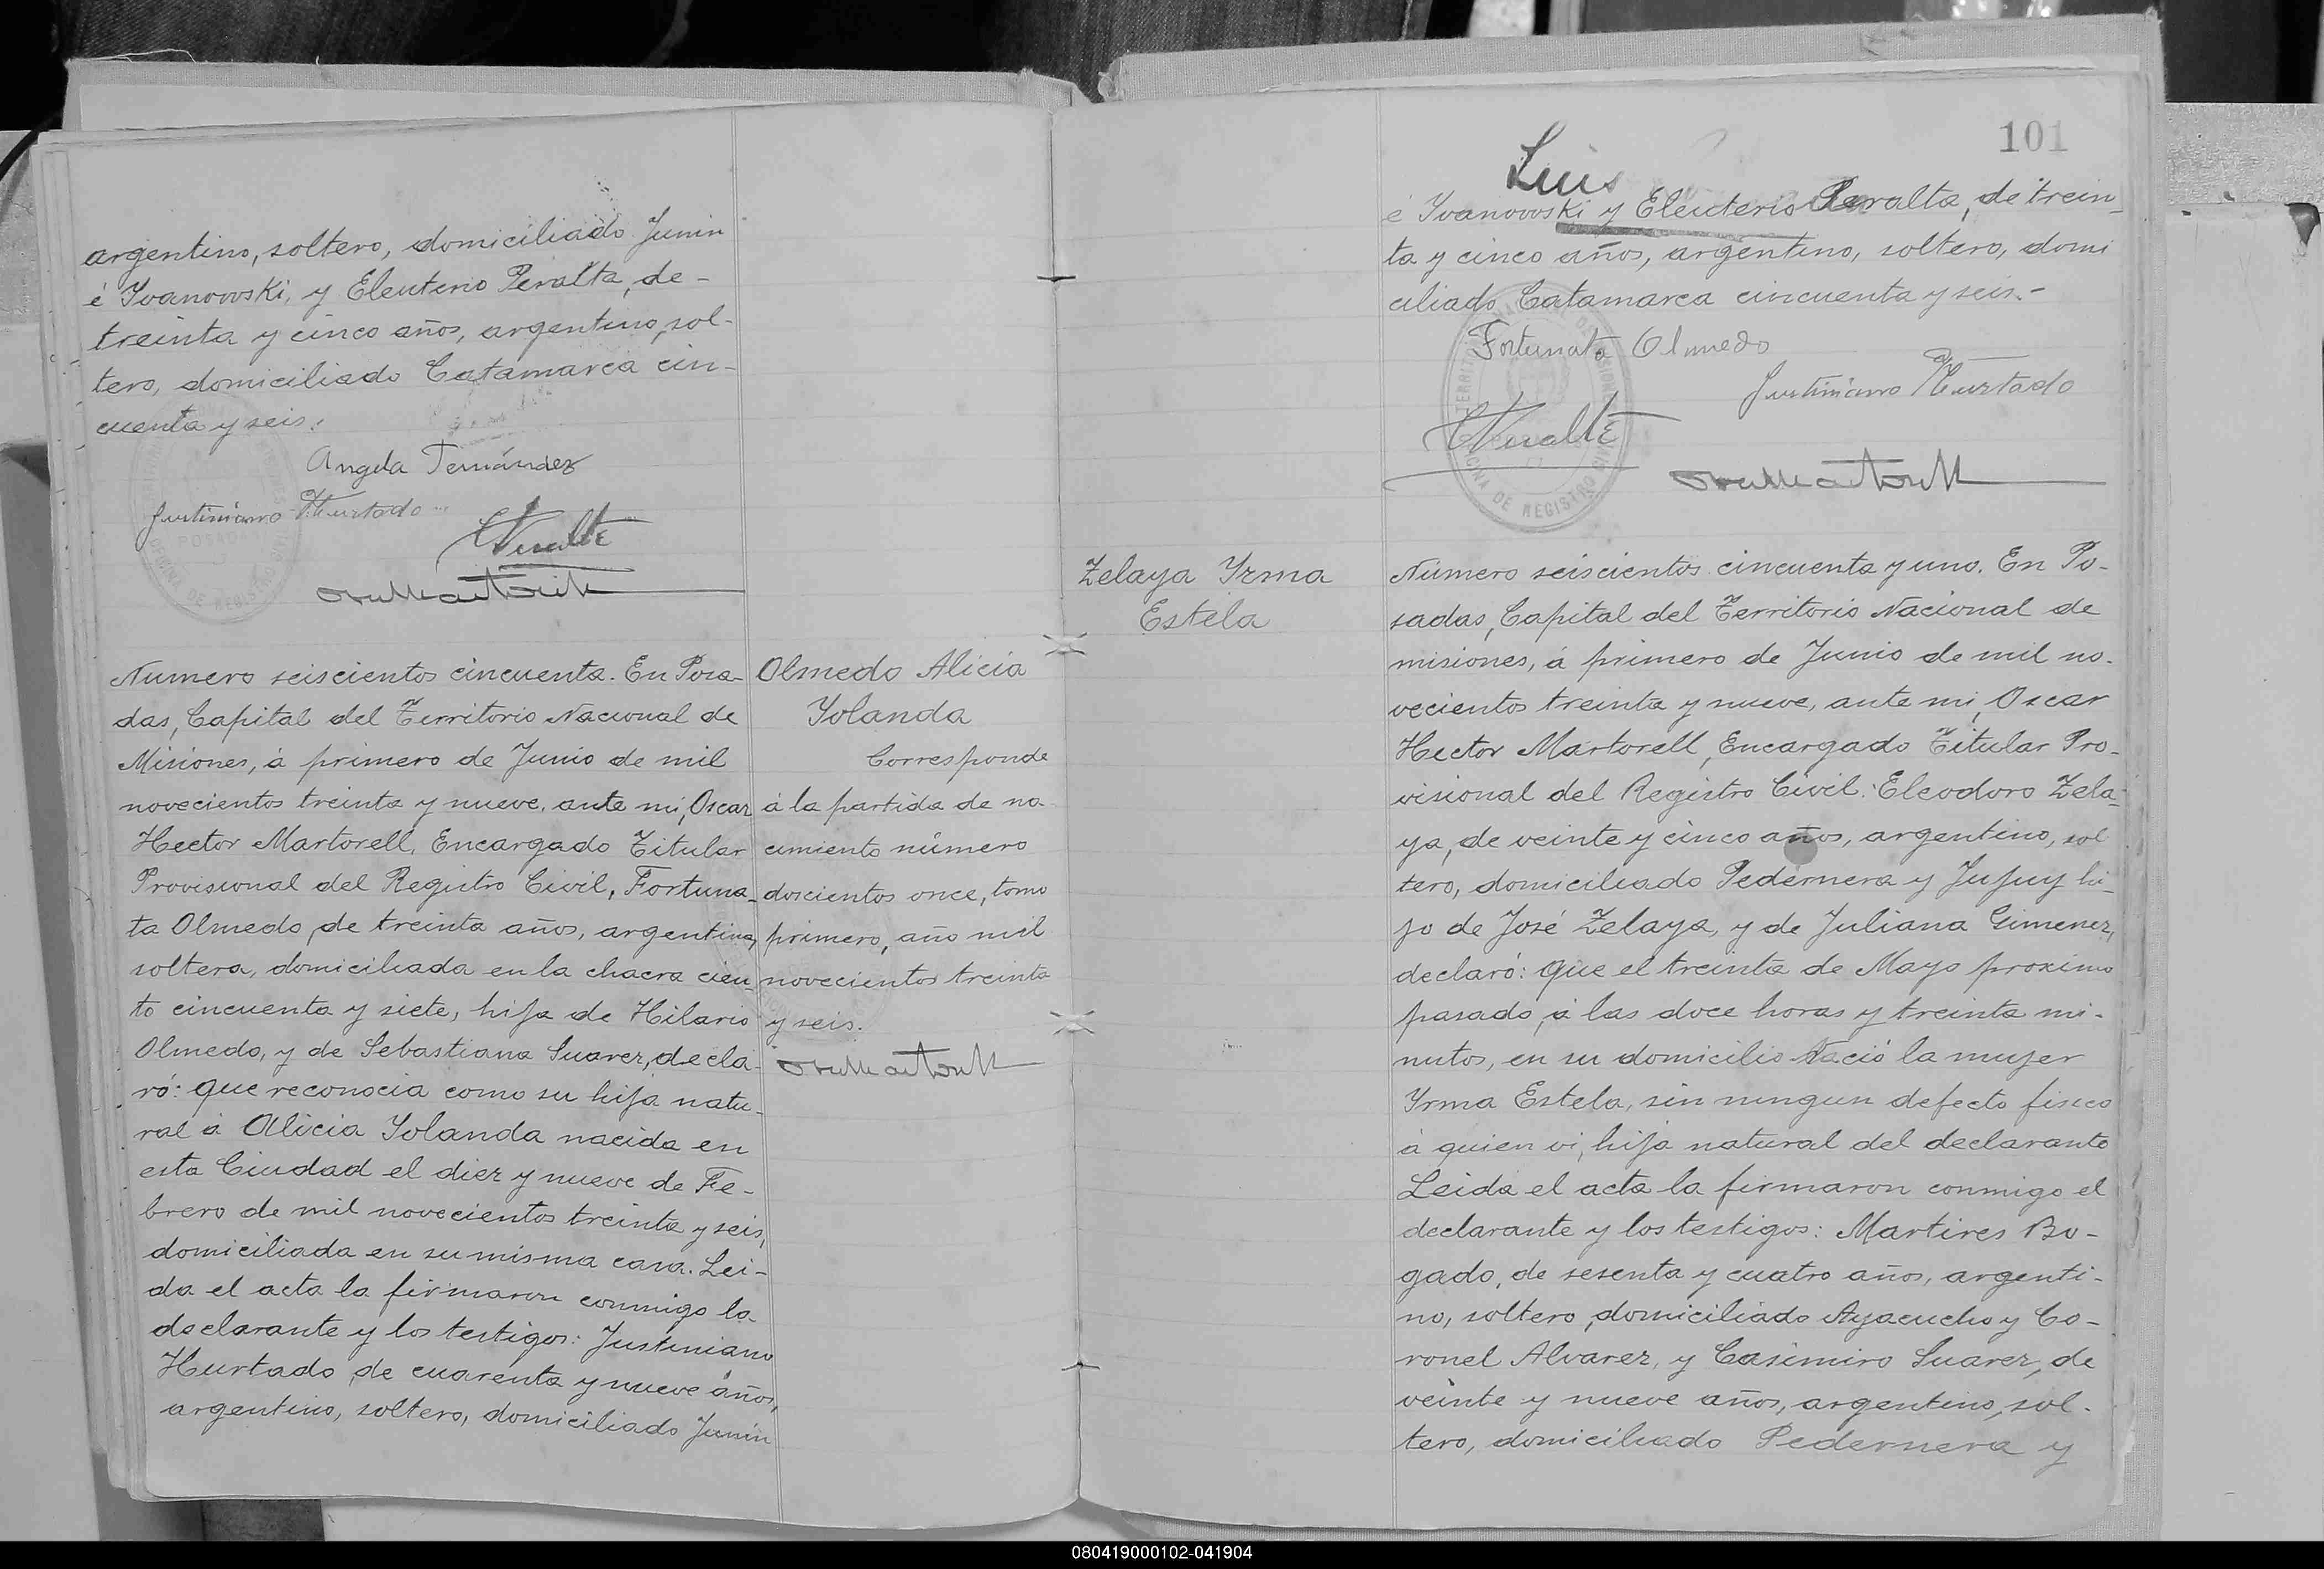 argentino, soltero, domiciliado Junin
é Yvanowski, y Eleuterio Peralta, de-
treinta y cinco años, argentino, sol-
tero, domiciliado Catamarca cin-
cuenta y seis.
Angela Fernández
Justiniano Hurtado
POSADAS
OFICINA DE REGISTRO CIVIL
Numero seiscientos cincuenta. En Posa-
das, Capital del Territorio Nacional de
Misiones, á primero de Junio de mil
novecientos treinta y nueve, ante mi, Oscar
Hector Martorell, Encargado Titular
Provisional del Registro Civil, Fortuna-
ta Olmedo, de treinta años, argentina,
soltera, domiciliada en la chacra cien-
to cincuenta y siete, hija de Hilario
Olmedo, y de Sebastiana Suarez, decla-
ró: que reconocia como su hija natu-
ral á Alicia Yolanda nacida en
esta Ciudad el diez y nueve de Fe-
brero de mil novecientos treinta y seis,
domiciliada en su misma casa. Lei-
da el acta la firmaron conmigo la
declarante y los testigos: Justiniano
Hurtado, de cuarenta y nueve años,
argentino, soltero, domiciliado Junin
Olmedo Alicia
Yolanda
Corresponde
á la partida de na-
cimiento número
doscientos once, tomo
primero, año mil
novecientos treinta
y seis.
101
Luis
é Yvanowski y Eleuterio Peralta, de trein-
ta y cinco años, argentino, soltero, domi
ciliado Catamarca cincuenta y seis.-
Fortunata Olmedo
Justiniano Hurtado
Peralta
Zelaya Yrma
Estela
Número seiscientos cincuenta y uno. En Po-
sadas, Capital del Territorio Nacional de
misiones, á primero de Junio de mil no-
vecientos treinta y nueve, ante mi, Oscar
Hector Martorell, Encargado Titular Pro-
visional del Registro Civil: Eleodoro Zela-
ya, de veinte y cinco años, argentino, sol
tero, domiciliado Pedernera y Jujuy hi-
jo de José Zelaya, y de Juliana Gimenez,
declaró: que el treinta de Mayo proximo
pasado, á las doce horas y treinta mi-
nutos, en su domicilio nació la mujer
Yrma Estela, sin ningun defecto fisico
á quien vi, hija natural del declarante
Leida el acta la firmaron conmigo el
declarante y los testigos: Martires Bo-
gado, de sesenta y cuatro años, argenti-
no, soltero, domiciliado Ayacucho y Co-
ronel Alvarez, y Casimiro Suarez, de
veinte y nueve años, argentino, sol-
tero, domiciliado Pedernera y
080419000102-041904